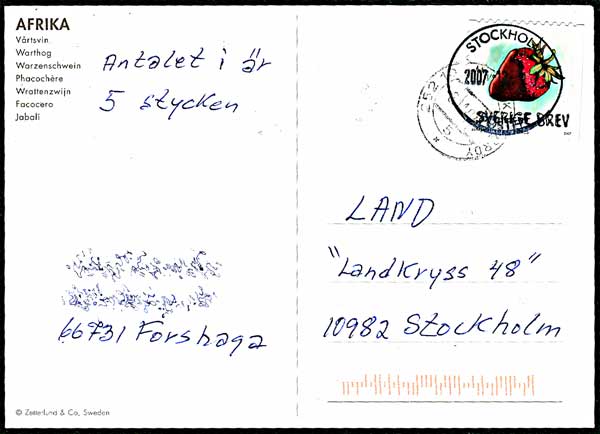 AFRIKA
Vårtsvin
Warthog
Warzenschwein
Phacochère
Wrattenzwijn
Facocero
Jabalí
Antalet i är
5 stycken
66731 Forshaga
© Zetterlund & Co, Sweden
STOCKHOLM
2007
SVERIGE BREV
LAND
"Landkryss 48"
10982 Stockholm